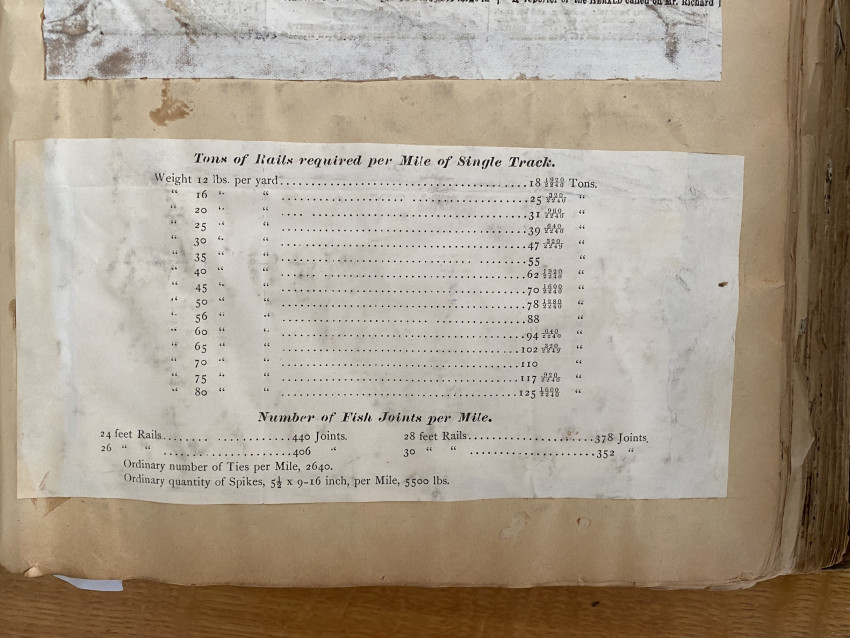 A reporter of the HERALD called on Mr. Richard
Tons of Rails required per Mile of Single Track.
Weight 12 lbs. per yard........................................18 1920/2240 Tons.
“ 16 “ “ ........................................25 320/2240 “
“ 20 “ “ ........................................31 960/2240 “
“ 25 “ “ ........................................39 640/2240 “
“ 30 “ “ ........................................47 320/2240 “
“ 35 “ “ ........................................55 “
“ 40 “ “ ........................................62 1920/2240 “
“ 45 “ “ ........................................70 1600/2240 “
“ 50 “ “ ........................................78 1280/2240 “
“ 56 “ “ ........................................88 “
“ 60 “ “ ........................................94 640/2240 “
“ 65 “ “ ........................................102 320/2240 “
“ 70 “ “ ........................................110 “
“ 75 “ “ ........................................117 920/2240 “
“ 80 “ “ ........................................125 1600/2240 “
Number of Fish Joints per Mile.
24 feet Rails....................440 Joints. 28 feet Rails.....................378 Joints.
26 “ “ .....................406 “ 30 “ “ .....................352 “
Ordinary number of Ties per Mile, 2640.
Ordinary quantity of Spikes, 5½ x 9-16 inch, per Mile, 5500 lbs.